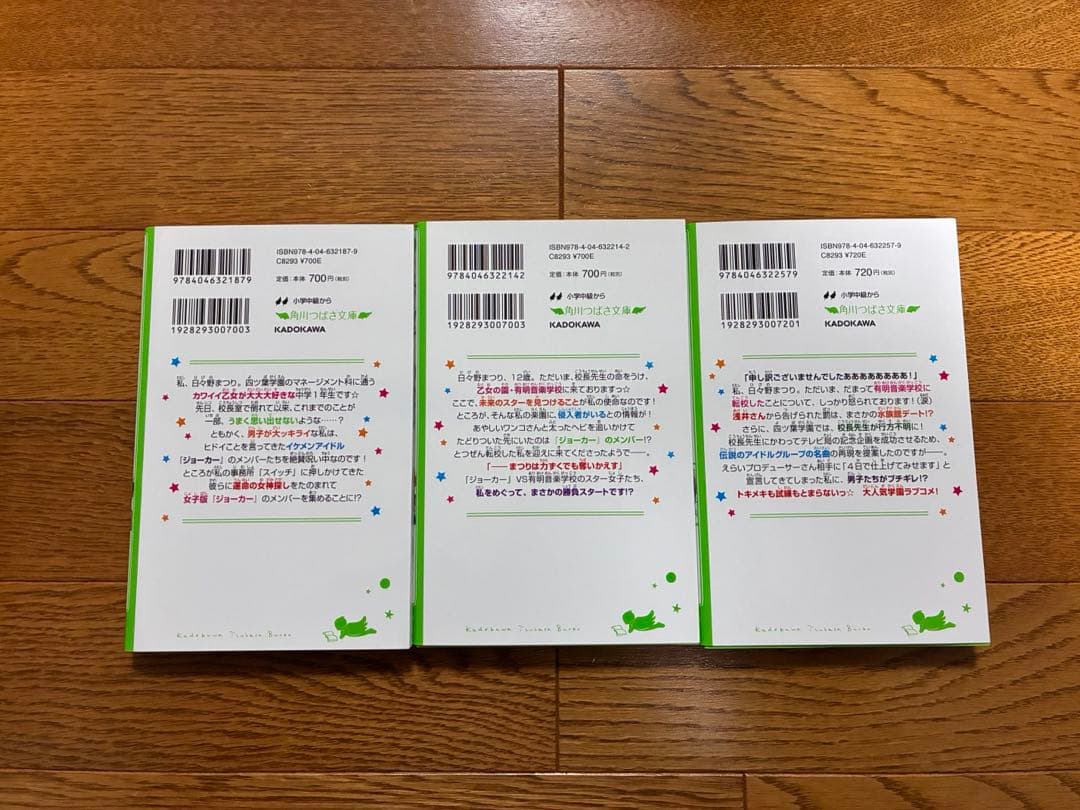 ISBN978-4-04-632187-9
C8293 ¥700E
9784046321879
定価：本体 700円(税別)
小学中級から
1928293007003
角川つばさ文庫
KADOKAWA
私、日々野まつり。四ツ葉学園のマネージメント科に通う
カワイイ乙女が大大大好きな中学1年生です☆
先日、校長室で倒れて以来、これまでのことが
一部、うまく思い出せないような……？
ともかく、男子が大ッキライな私は、
ヒドイことを言ってきたイケメンアイドル
『ジョーカー』のメンバーたちを絶賛呪い中なのです！
ところが私の事務所『スイッチ』に押しかけてきた
彼らに運命の女神探しをたのまれて
女子版『ジョーカー』のメンバーを集めることに!?
Kadokawa Tsubasa Bunko
ISBN978-4-04-632214-2
C8293 ¥700E
9784046322142
定価：本体 700円(税別)
小学中級から
1928293007003
角川つばさ文庫
KADOKAWA
日々野まつり、12歳。ただいま、校長先生の命をうけ、
乙女の園・有明音楽学校に来ておりますっ☆
ここで、未来のスターを見つけることが私の使命なのです！
ところが、そんな私の楽園に、侵入者がいるとの情報が！
あやしいワンコさんと太ったヘビを追いかけて
たどりついた先にいたのは『ジョーカー』のメンバー!?
とつぜん転校した私を迎えに来てくださったようで――。
「――まつりは力ずくでも奪いかえす」
『ジョーカー』VS有明音楽学校のスター女子たち、
私をめぐって、まさかの勝負スタートです!?
Kadokawa Tsubasa Bunko
ISBN978-4-04-632257-9
C8293 ¥720E
9784046322579
定価：本体 720円(税別)
小学中級から
1928293007201
角川つばさ文庫
KADOKAWA
「申し訳ございませんでしたあああああああ！」
私、日々野まつり、ただいま、だまって有明音楽学校に
転校したことについて、しっかり怒られております！(涙)
浅井さんから告げられた罰は、まさかの水族館デート!?
さらに、四ツ葉学園では、校長先生が行方不明に！
校長先生にかわってテレビ局の記念企画を成功させるため、
伝説のアイドルグループの名曲の再現を提案したのですが――。
えらいプロデューサーさん相手に「4日で仕上げてみせます」と
宣言してきてしまった私に、男子たちがブチギレ!?
トキメキも試練もとまらないっ☆ 大人気学園ラブコメ！
Kadokawa Tsubasa Bunko